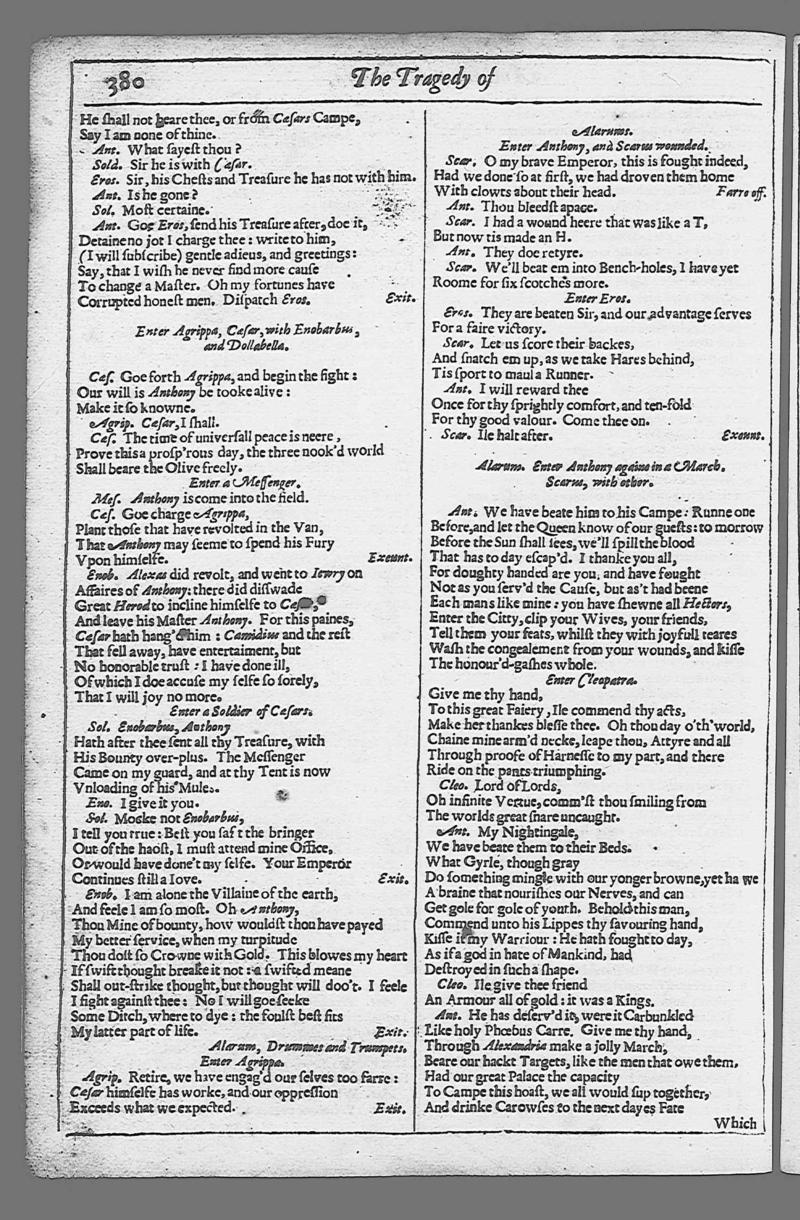 380
The Tragedy of
He ſhall not heare thee, or from Cæſars Campe,
Say I am none of thine.
Ant. What ſayeſt thou?
Sold. Sir he is with Cæſar.
Eros. Sir, his Cheſts and Treaſure he has not with him.
Ant. Is he gone?
Sol. Moſt certaine.
Ant. Goe Eros, ſend his Treaſure after, doe it,
Detaine no jot I charge thee: write to him,
(I will ſubſcribe) gentle adieus, and greetings:
Say, that I wiſh he never find more cauſe
To change a Maſter. Oh my fortunes have
Corrupted honeſt men. Diſpatch Eros. Exit.
Enter Agrippa, Cæſar, with Enobarbus,
and Dollabella.
Cæſ. Goe forth Agrippa, and begin the fight:
Our will is Anthony be tooke alive:
Make it ſo knowne.
Agrip. Cæſar, I ſhall.
Cæſ. The time of univerſall peace is neere,
Prove this a proſp'rous day, the three nook'd world
Shall beare the Olive freely.
Enter a Meſſenger.
Meſ. Anthony is come into the field.
Cæſ. Goe charge Agrippa,
Plant thoſe that have revolted in the Van,
That Anthony may ſeeme to ſpend his Fury
Vpon himſelfe. Exeunt.
Enob. Alexas did revolt, and went to Iewry on
Affaires of Anthony: there did diſſwade
Great Herod to incline himſelfe to Cæſar,
And leave his Maſter Anthony. For this paines,
Cæſar hath hang'd him: Camidius and the reſt
That fell away, have entertaiment, but
No honorable truſt: I have done ill,
Of which I doe accuſe my ſelfe ſo ſorely,
That I will joy no more.
Enter a Soldier of Cæſars.
Sol. Enobarbus, Anthony
Hath after thee ſent all thy Treaſure, with
His Bounty over-plus. The Meſſenger
Came on my guard, and at thy Tent is now
Vnloading of his Mules.
Eno. I give it you.
Sol. Mocke not Enobarbus,
I tell you true: Beſt you ſaf't the bringer
Out of the haoſt, I muſt attend mine Office,
Or would have done't my ſelfe. Your Emperor
Continues ſtill a Iove. Exit.
Enob. I am alone the Villaine of the earth,
And feele I am ſo moſt. Oh Anthony,
Thou Mine of bounty, how wouldſt thou have payed
My better ſervice, when my turpitude
Thou doſt ſo Crowne with Gold. This blowes my heart
If ſwift thought breake it not: a ſwifted meane
Shall out-ſtrike thought, but thought will doo't. I feele
I fight againſt thee: No I will goe ſeeke
Some Ditch, where to dye: the foulſt beſt fits
My latter part of life. Exit.
Alarum, Drummes and Trumpets.
Enter Agrippa.
Agrip. Retire, we have engag'd our ſelves too farre:
Cæſar himſelfe has worke, and our oppreſſion
Exceeds what we expected. Exit.
Alarums.
Enter Anthony, and Scarus wounded.
Scar. O my brave Emperor, this is fought indeed,
Had we done ſo at firſt, we had droven them home
With clowts about their head. Farre off.
Ant. Thou bleedſt apace.
Scar. I had a wound heere that was like a T,
But now tis made an H.
Ant. They doe retyre.
Scar. We'll beat em into Bench-holes, I have yet
Roome for ſix ſcotches more.
Enter Eros.
Eros. They are beaten Sir, and our advantage ſerves
For a faire victory.
Scar. Let us ſcore their backes,
And ſnatch em up, as we take Hares behind,
Tis ſport to maul a Runner.
Ant. I will reward thee
Once for thy ſprightly comfort, and ten-fold
For thy good valour. Come thee on.
Scar. Ile halt after. Exeunt.
Alarum. Enter Anthony againe in a March.
Scarus, with other.
Ant. We have beate him to his Campe: Runne one
Before, and let the Queen know of our gueſts: to morrow
Before the Sun ſhall ſees, we'll ſpill the blood
That has to day eſcap'd. I thanke you all,
For doughty handed are you, and have fought
Not as you ſerv'd the Cauſe, but as't had beene
Each mans like mine: you have ſhewne all Hectors,
Enter the Citty, clip your Wives, your friends,
Tell them your feats, whilſt they with joyfull teares
Waſh the congealement from your wounds, and kiſſe
The honour'd-gaſhes whole.
Enter Cleopatra.
Give me thy hand,
To this great Faiery, Ile commend thy acts,
Make her thankes bleſſe thee. Oh thou day o'th' world,
Chaine mine arm'd necke, leape thou, Attyre and all
Through proofe of Harneſſe to my part, and there
Ride on the pants triumphing.
Cleo. Lord of Lords,
Oh infinite Vertue, comm'ſt thou ſmiling from
The worlds great ſnare uncaught.
Ant. My Nightingale,
We have beate them to their Beds.
What Gyrle, though gray
Do ſomething mingle with our yonger browne, yet ha we
A braine that nouriſhes our Nerves, and can
Get gole for gole of youth. Behold this man,
Commend unto his Lippes thy favouring hand,
Kiſſe it my Warriour: He hath fought to day,
As if a god in hate of Mankind, had
Deſtroyed in ſuch a ſhape.
Cleo. Ile give thee friend
An Armour all of gold: it was a Kings.
Ant. He has deſerv'd it, were it Carbunkled
Like holy Phœbus Carre. Give me thy hand,
Through Alexandria make a jolly March,
Beare our hackt Targets, like the men that owe them.
Had our great Palace the capacity
To Campe this hoaſt, we all would ſup together,
And drinke Carowſes to the next dayes Fate
Which